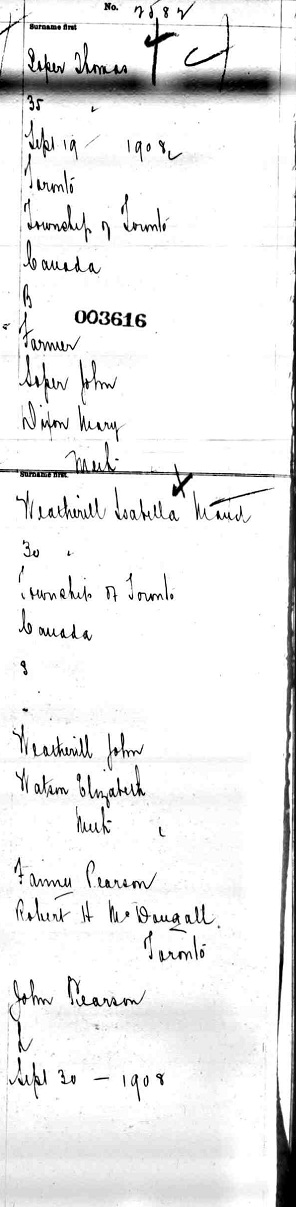 No. 7582
Surname first
Soper Thomas
35
Sept 19 1908
Toronto
Township of Toronto
Canada
B
003616
Farmer
Soper John
Dixon Mary
Meth
Surname first.
Weatherill Isabella Maud
30
Township of Toronto
Canada
S
-
Weatherill John
Watson Elizabeth
Meth
Fanny Pearson
Robert H McDougall
Toronto
John Pearson
L
Sept 30 - 1908